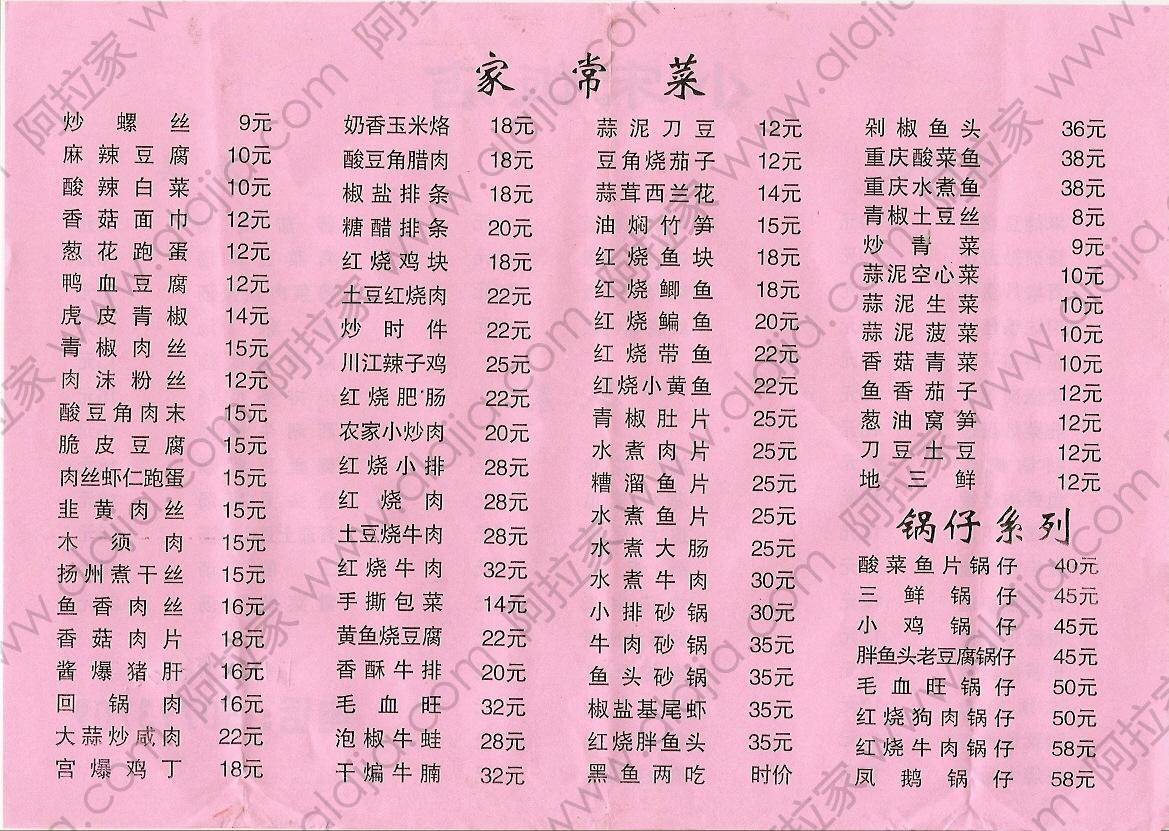 家常菜
炒螺丝 9元
麻辣豆腐 10元
酸辣白菜 10元
香菇面巾 12元
葱花跑蛋 12元
鸭血豆腐 12元
虎皮青椒 14元
青椒肉丝 15元
肉沫粉丝 12元
酸豆角肉末 15元
脆皮豆腐 15元
肉丝虾仁跑蛋 15元
韭黄肉丝 15元
木须肉 15元
扬州煮干丝 15元
鱼香肉丝 16元
香菇肉片 18元
酱爆猪肝 16元
回锅肉 16元
大蒜炒咸肉 22元
宫爆鸡丁 18元
奶香玉米烙 18元
酸豆角腊肉 18元
椒盐排条 18元
糖醋排条 20元
红烧鸡块 18元
土豆红烧肉 22元
炒时件 22元
川江辣子鸡 25元
红烧肥肠 22元
农家小炒肉 20元
红烧小排 28元
红烧肉 28元
土豆烧牛肉 28元
红烧牛肉 32元
手撕包菜 14元
黄鱼烧豆腐 22元
香酥牛排 20元
毛血旺 32元
泡椒牛蛙 28元
干煸牛腩 32元
蒜泥刀豆 12元
豆角烧茄子 12元
蒜茸西兰花 14元
油焖竹笋 15元
红烧鱼块 18元
红烧鲫鱼 18元
红烧鳊鱼 20元
红烧带鱼 22元
红烧小黄鱼 22元
青椒肚片 25元
水煮肉片 25元
糟溜鱼片 25元
水煮鱼片 25元
水煮大肠 25元
水煮牛肉 30元
小排砂锅 30元
牛肉砂锅 35元
鱼头砂锅 35元
椒盐基尾虾 35元
红烧胖鱼头 35元
黑鱼两吃 时价
剁椒鱼头 36元
重庆酸菜鱼 38元
重庆水煮鱼 38元
青椒土豆丝 8元
炒青菜 9元
蒜泥空心菜 10元
蒜泥生菜 10元
蒜泥菠菜 10元
香菇青菜 10元
鱼香茄子 12元
葱油窝笋 12元
刀豆土豆 12元
地三鲜 12元
锅仔系列
酸菜鱼片锅仔 40元
三鲜锅仔 45元
小鸡锅仔 45元
胖鱼头老豆腐锅仔 45元
毛血旺锅仔 50元
红烧狗肉锅仔 50元
红烧牛肉锅仔 58元
凤鹅锅仔 58元
阿拉家 www.alajia.com